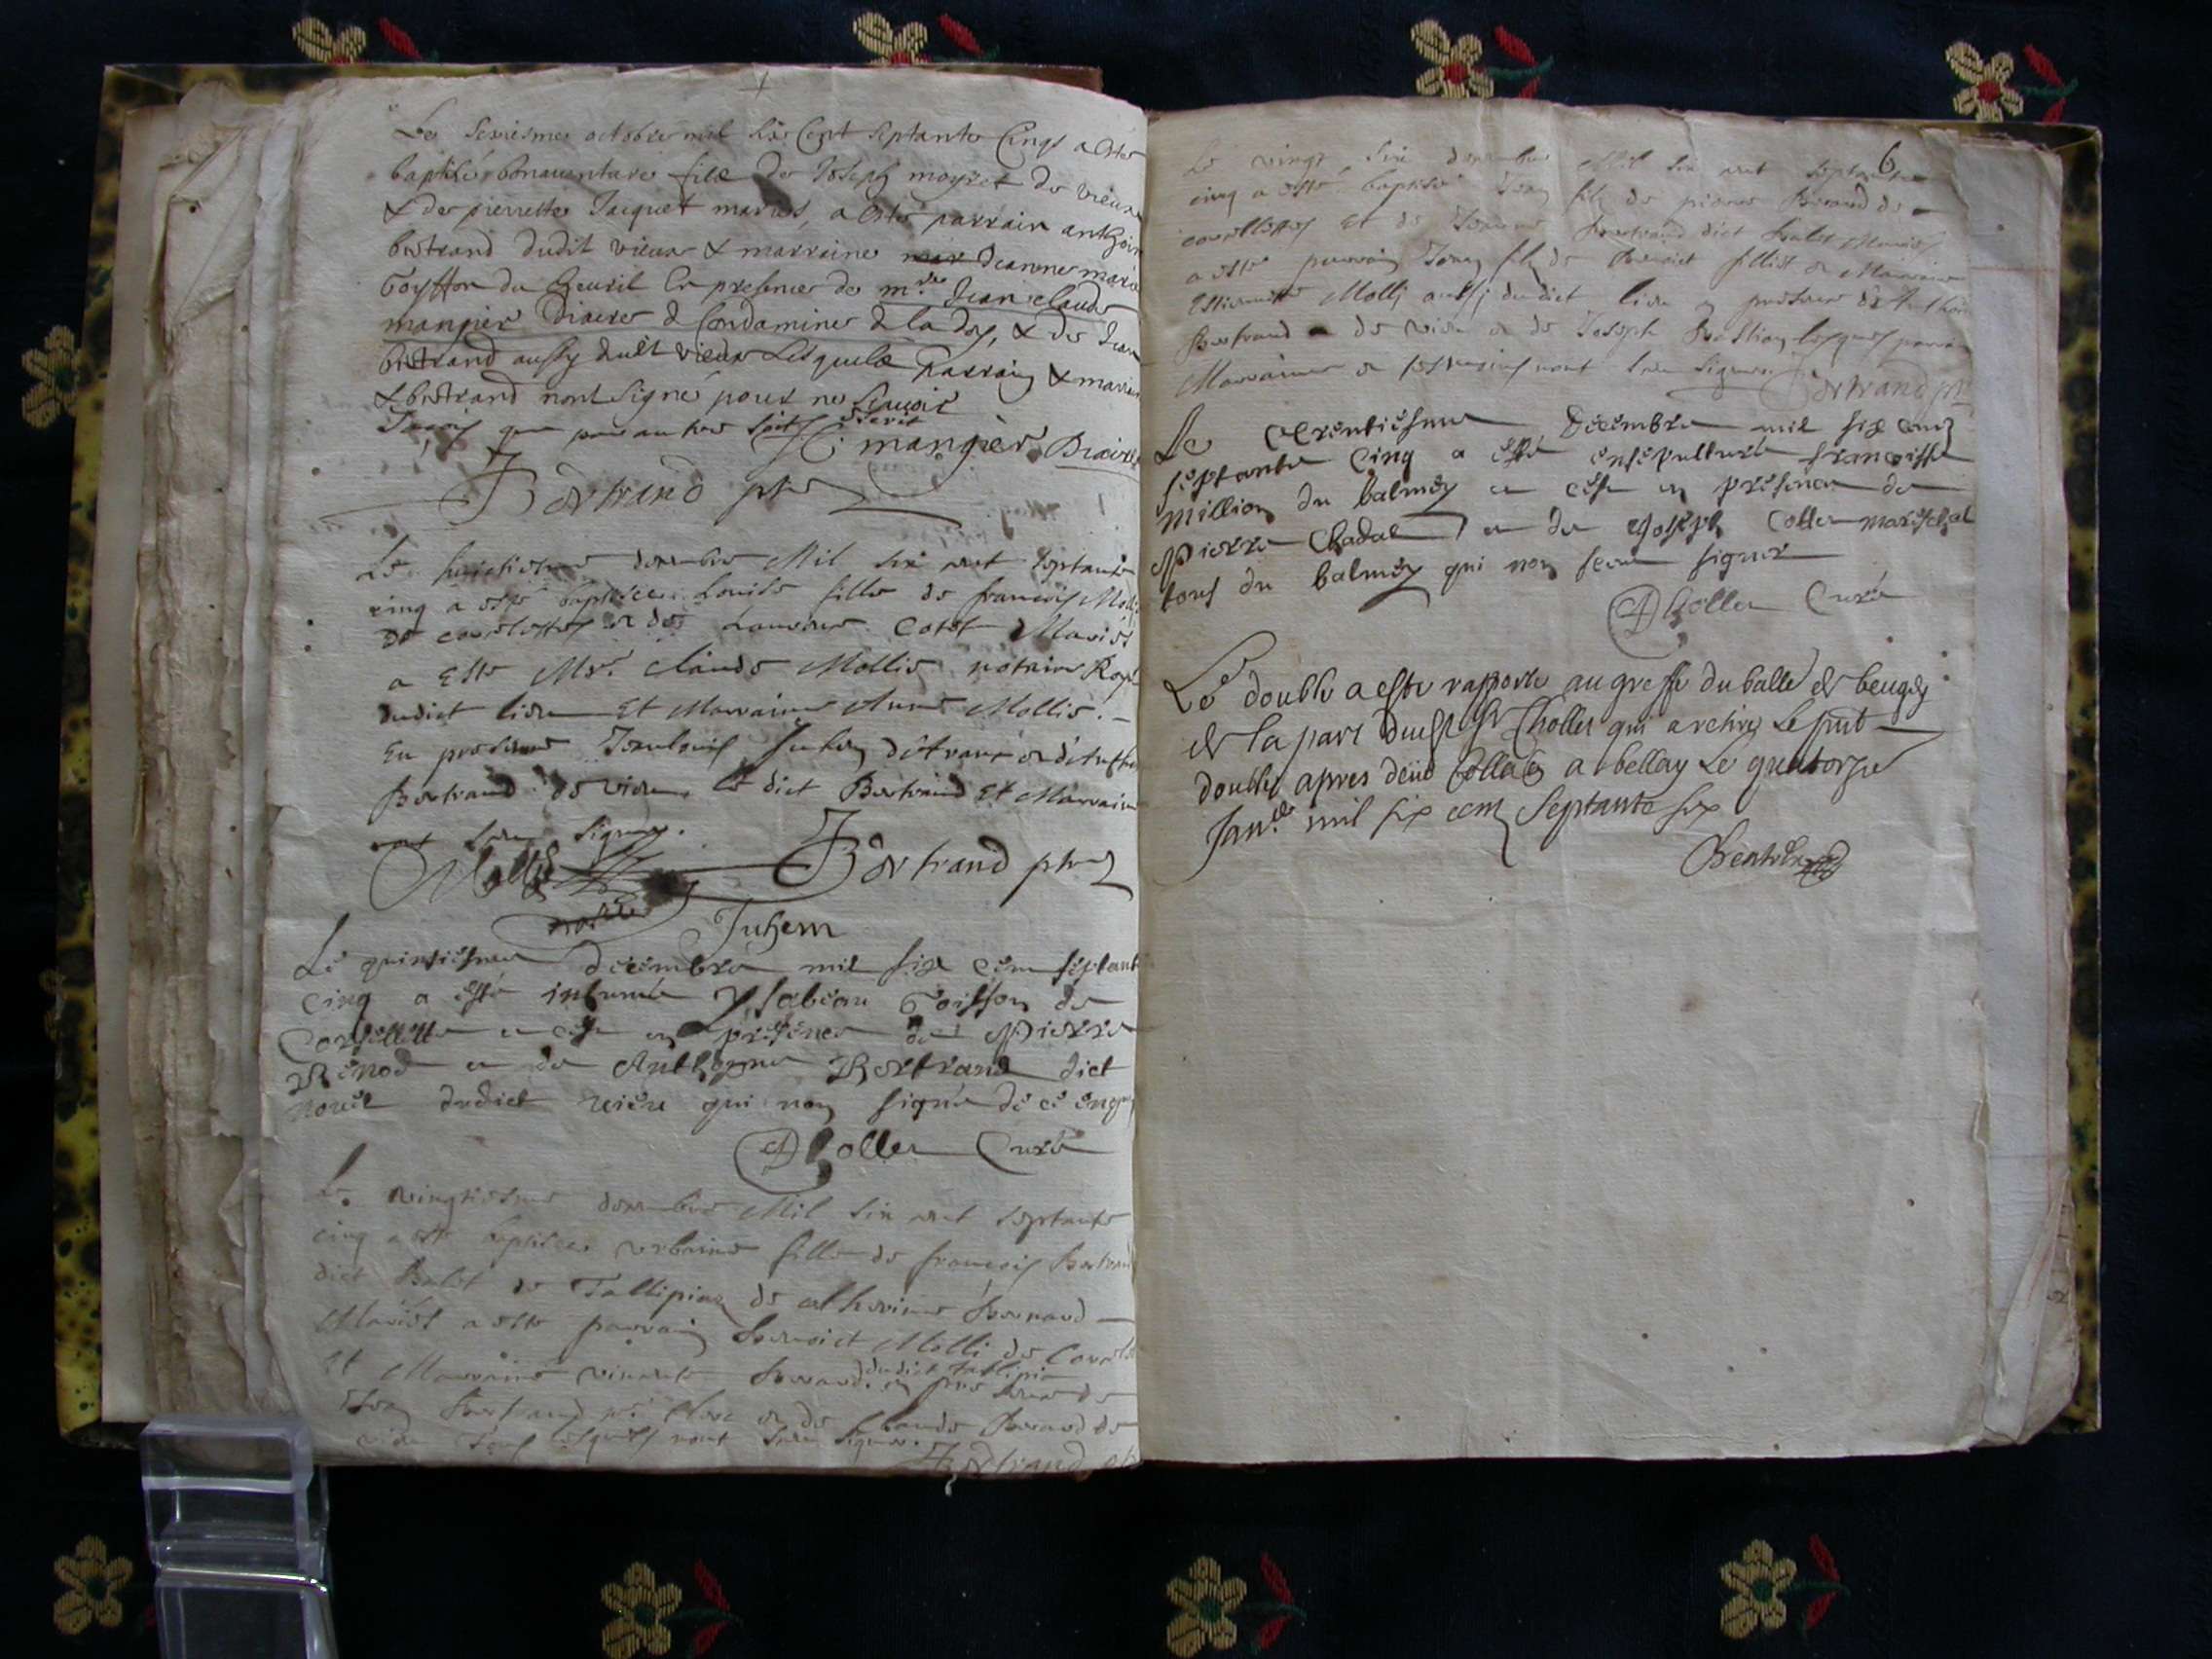 Le sexiesme octobre mil six Cent septante Cinq a esté
baptisé bonaventure fille de Joseph moyret de vieux
& de pierrette Jacquet mariés, a esté parrain anthoin
bertrand dudit vieux & marraine Jeanne marie
Goyffon du breuil En presence de m.re Jean claude
mangier Diacre de Condamine de la doy, & de Jean
bertrand aussy dudit vieux Lesquels parrain & marrain
& bertrand nont signé pour ne scavoir
mangier Diacre
Bertrand ptre
Le huictiesme decembre Mil six cent septante
cinq a esté baptisee Louise fille de francois Molli
de corcelettes et de Cotet Mariés
a Esté Mre. Claude Mollie notaire Royal
dudict lieu Et Marraine Anne Mollie. -
En presence Jeanlouis Juhem et de
Bertrand de vieu le dict Bertrand Et Marraine
nont sceu signer.
Mollie Bertrand ptre
notre
Juhem
Le quinsiesme decembre mil six cem septante
Cinq a esté inhumée Ysabeau Goiffon de
Corsellette et cest en presence de Pierre
Renod et de Anthoyne Bertrand dict
dudict qui non signé de ce enqs
Chollet Curé
Le vingtiesme decembre Mil six cent septante
cinq a esté baptisee urbaine fille de francois Bertrand
dict Balet de Tallipiaz de catherine Bernard
Mariés a esté parrain Benoict Molli de Corcel
Et Marraine Bernard dudict Tallipia
en presence de
Jean Bertrand clerc et de Claude Bernard de
vieu lesquels nont sceu signer.
Bertrand ptr
6
Le vingt six decembre Mil six cent septante
cinq a esté baptisé Jean fils de pierre Bernard de
corcellettes Et de Jeanne Bertrand dict balet Mariés
a esté parrain Jean fils de Benoict filliet et Marraine
Estiennette Molli aussi dudict lieu en presence de Anthoin
Bertrand de vieu et de Joseph lesquels parrain
Marraine et nont sceu signer. Bertrand ptr
Le trentiesme Décembre mil six cens
septante Cinq a esté ensepulturé francoisse
Million du balmey et cest en présence de
Pierre Chadal et de Joseph Collet mareschal
tous du balmey qui non sceu signer
Chollet Curé
Le double a este rapporté au greffe du balle de beugey
de la part dudt Sr Chollet qui a retiré Le pnt
double apres deue Collaon a bellay Le quatorze
Janer mil six cens Septante six